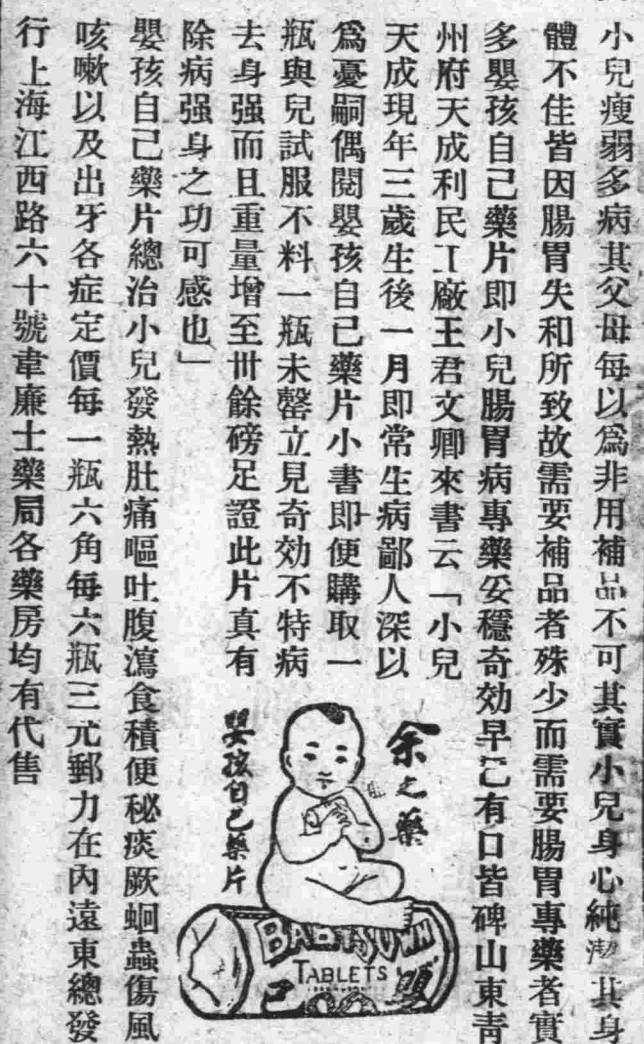 小兒瘦弱多病其父母每以爲非用補品不可其實小兒身心純潔其身
體不佳皆因腸胃失和所致故需要補品者殊少而需要腸胃專藥者實
多嬰孩自己藥片即小兒腸胃病專藥妥穩奇効早已有口皆碑山東靑
州府天成利民工廠王君文卿來書云「小兒
天成現年三歲生後一月即常生病鄙人深以
爲憂嗣偶閱嬰孩自己藥片小書即便購取一
瓶與兒試服不料一瓶未罄立見奇効不特病
去身强而且重量增至卅餘磅足證此片真有
除病强身之功可感也」
嬰孩自己藥片總治小兒發熱肚痛嘔吐腹瀉食積便秘痰厥蛔蟲傷風
咳嗽以及出牙各症定價每一瓶六角每六瓶三元郵力在內遠東總發
行上海江西路六十號韋廉士藥局各藥房均有代售
余之藥
嬰孩自己藥片
BABY'S OWN
TABLETS
嬰
己